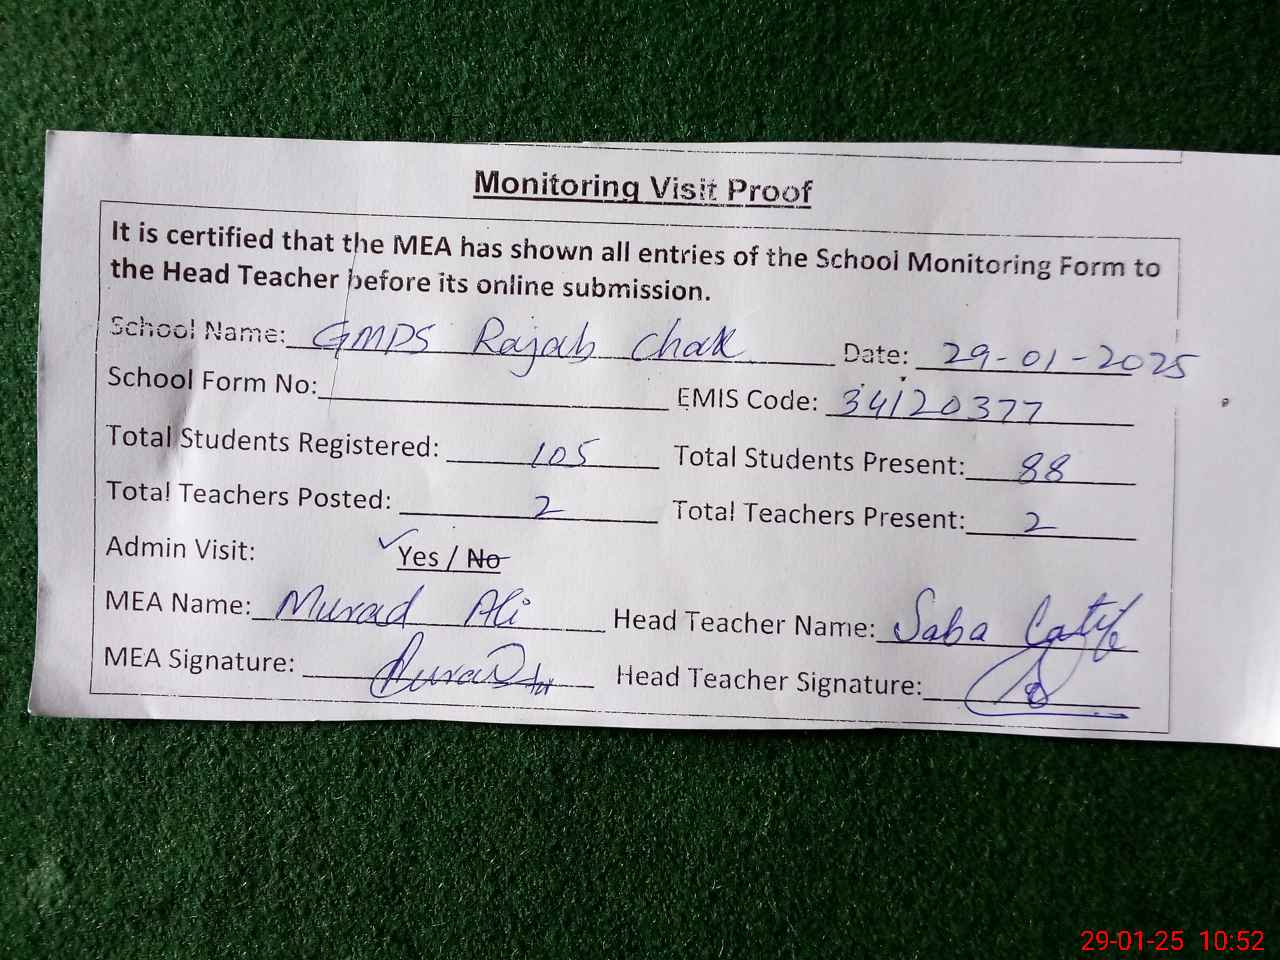 Monitoring Visit Proof
It is certified that the MEA has shown all entries of the School Monitoring Form to
the Head Teacher before its online submission.
School Name: GMPS Rajab Chak Date: 29-01-2025
School Form No: EMIS Code: 34120377
Total Students Registered: 105 Total Students Present: 88
Total Teachers Posted: 2 Total Teachers Present: 2
Admin Visit: Yes / No
MEA Name: Murad Ali Head Teacher Name: Saba Latif
MEA Signature: Head Teacher Signature:
29-01-25 10:52